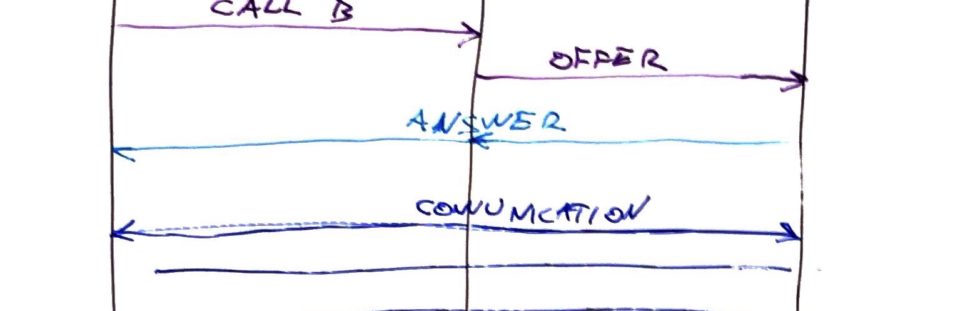 CALL B
OFFER
ANSWER
CONUMCATION